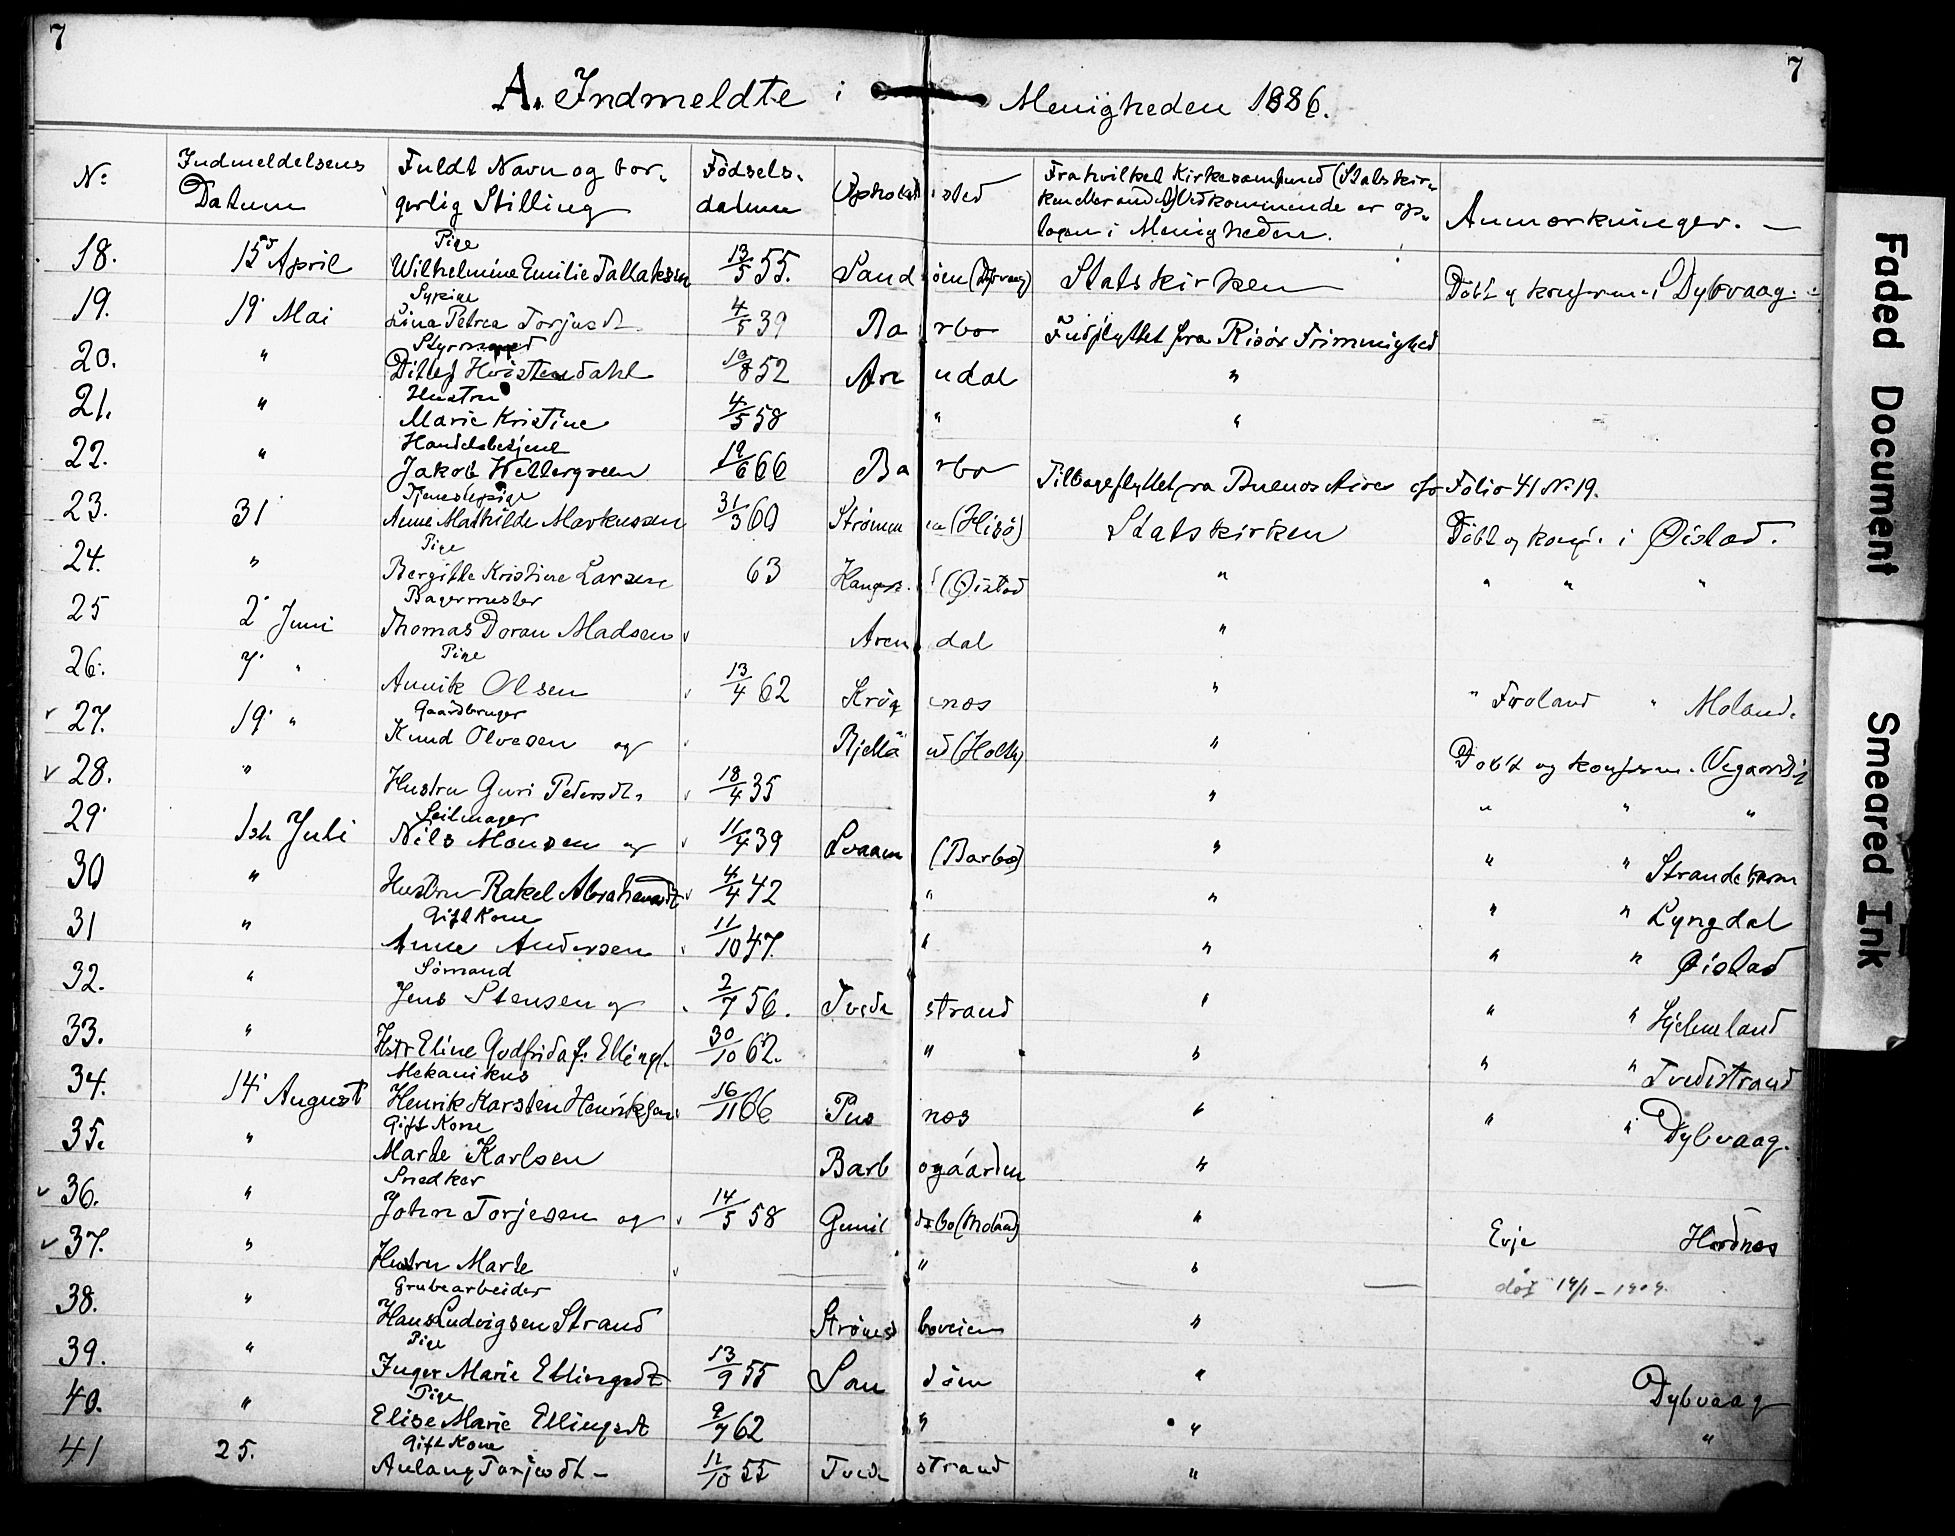 7 7
A. Indmeldte i Menigheden 1886.
No Indmeldelsens Datum Fuldt Navn og borgerlig Stilling Fødselsdatum Opholdssted Fra hvilket Kirkesamfund (Statskirken eller andet) Vedkommende er optagen i Menigheden. Anmærkninger.
Pige
18. 15 April Wilhelmine Emilie Tallaksen 13/5 55. Sandøen (Dybvaag) Statskirken Døbt og konfirm. i Dybvaag.
Sypige
19. 19 Mai Lina Petrea Torjusdt. 4/5 39 Barbo Indflyttet fra Risør Frimenighed
Styrmand
20. " Ditlef Hvistendahl 10/8 52 Arendal "
Hustru
21. " Marie Kristine 4/5 58 " "
Handelsbetjent
22. " Jakob Wettergreen 19/6 66 Barbo Tilbageflyttet fra Buenos Aires cfr Folio 41 No 19.
Tjenestepige
23. 31 Anne Mathilde Markussen 31/3 60 Strømmen (Hisø) Statskirken Døbt og konf. i Øistad.
Pige
24. " Bergitte Kristine Larsen 63 (Øistad " " " "
Bagermester
25 2 Juni Thomas Doran Madsen Arendal "
Pige
26. 7 " Annik Olsen 13/4 62 Krøgenes " " Froland " Moland.
Gaardbruger
27. 19 " Knud Olvesen og (Holt) " Døbt og konfirm. Vegaardsh
28. " Hustru Guri Pedersdt. 18/4 35 " " " "
Seilmager
29 1ste Juli Nils Monsen og 11/4 39 (Barbo) " " " Strandebarm
30 " Hustru Rakel Abrahamsdt 4/4 42 " " " " Lyngdal
Gift Kone
31 " Anne Andersen 11/10 47. " " " " Øistad
Sømand
32. " Jens Stensen og 2/7 56. Tvedestrand " " " Hjelmeland
33. " Hstr Eline Godfrida f. Ellingf. 30/10 62. " " " " Tvedestrand
Mekanikus
34. 14 August Henrik Karsten Henriksen 16/11 66 Pusnes " " " Dybvaag.
Gift Kone
35. " Marte Karlsen Barbogaarden "
Snedker
36. " John Torjesen og 14/5 58 (Moland) " Evje Hordnes
37. " Hustru Marte " " død 14/1 - 1909.
Grubearbeider
38. " Hans Ludvigsen Strand Strømsboveien "
Pige
39. " Inger Marie Ellingsdt 13/9 55 Sandøen " Dybvaag
Pige
40. " Elise Marie Ellingsdt 9/7 62 " " "
Gift Kone
41 25. Aulaug Torjusdt - 12/10 55 Tvedestrand "
Faded Document
Smeared Ink